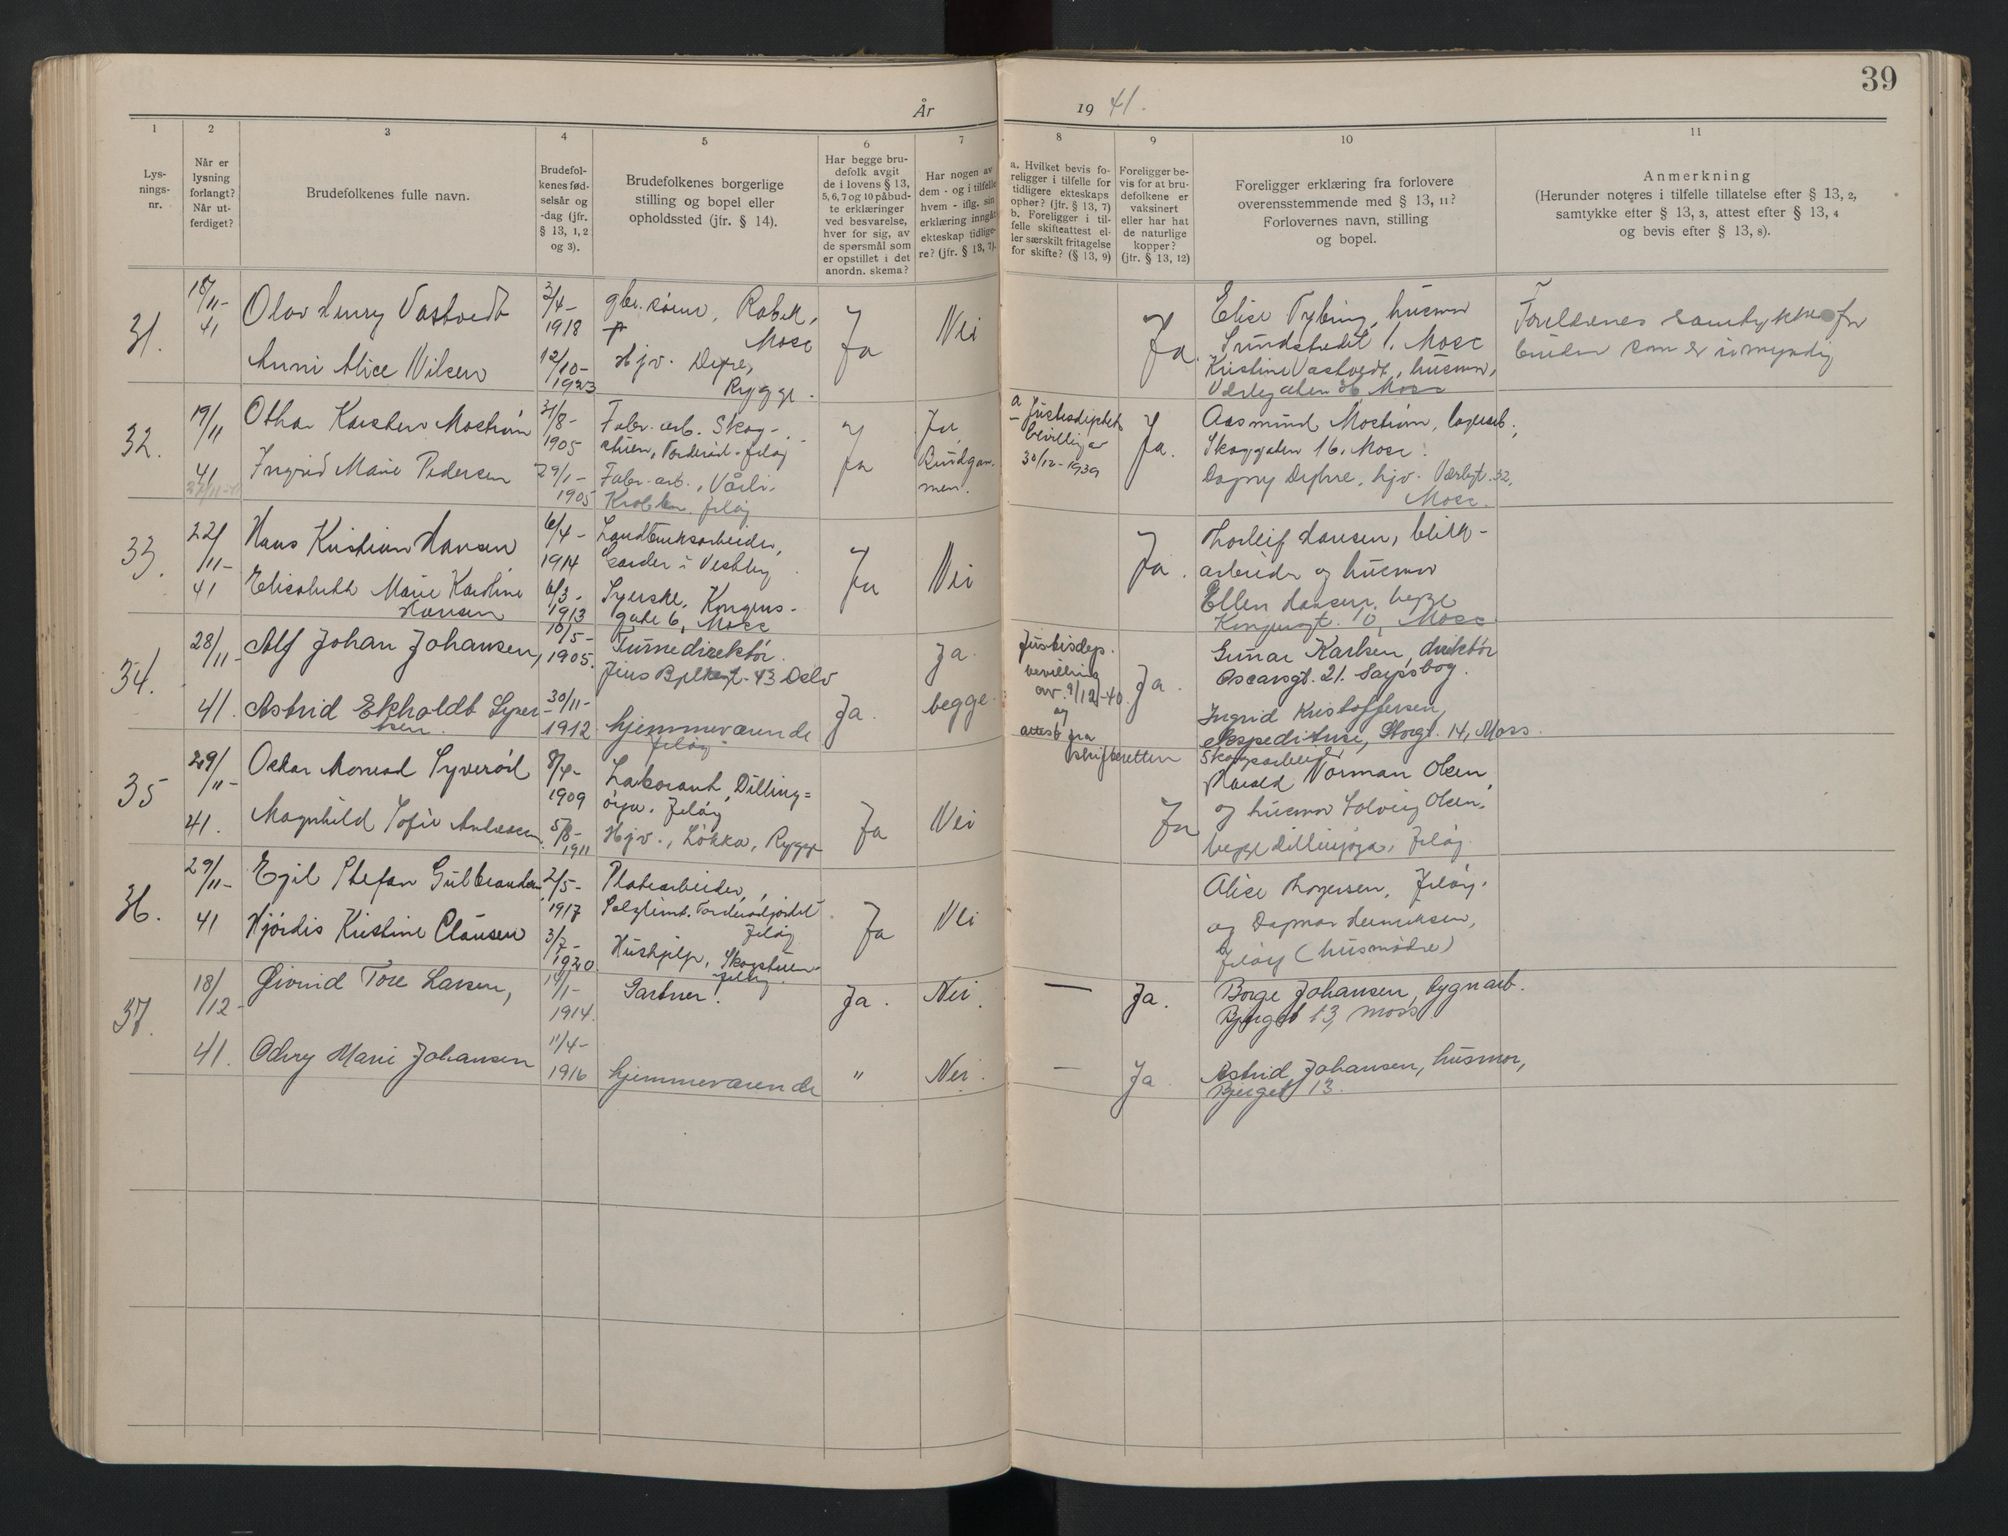 39
År 1941.
1 2 3 4 5 6 7 8 9 10 11
Lys-
nings-
nr.
Når er
lysning
forlangt?
Når ut-
ferdiget?
Brudefolkenes fulle navn.
Brudefol-
kenes fød-
selsår og
-dag (jfr.
§ 13, 1, 2
og 3).
Brudefolkenes borgerlige
stilling og bopel eller
opholdssted (jfr. § 14).
Har begge bru-
defolk avgit
de i lovens § 13,
5, 6, 7 og 10 påbud-
te erklæringer
ved besvarelse,
hver for sig, av
de spørsmål som
er opstillet i det
anordn. skema?
Har nogen av
dem - og i tilfelle
hvem - iflg. sin
erklæring inngått
ekteskap tidlige-
re? (jfr. § 13, 7).
a. Hvilket bevis fo-
religger i tilfelle for
tidligere ekteskaps
ophør? (jfr. § 13, 7)
b. Foreligger i til-
felle skifteattest el-
ler særskilt fritagelse
for skifte? (§ 13, 9)
Foreligger be-
vis for at bru-
defolkene er
vaksinert
eller har hat
de naturlige
kopper?
(jfr. § 13, 12)
Foreligger erklæring fra forlovere
overensstemmende med § 13, 11?
Forlovernes navn, stilling
og bopel.
Anmerkning
(Herunder noteres i tilfelle tillatelse efter § 13, 2,
samtykke efter § 13, 3, attest efter § 13, 4
og bevis efter § 13, 8).
31.
18/11-
41
Olav Henry Vastvedt
Anni Alice Nilsen
3/4-
1918
12/10-
1923
Rabek,
Moss
Hjv. Depre,
Rygge.
Ja
Nei
Ja.
Elise Tybring, husmor
Sundstredet 1. Moss
Kristine Vastvedt, husmor,
Værlegaten 36 Moss
Foreldrenes samtykke for
bruden som er umyndig
32.
19/11
41
Othar Karsten Mostrøm
Ingrid Marie Pedersen
31/8-
1905
29/1-
1905
Fabr. arb. Skog-
stuen, Torderød - Jeløy
Fabr. arb., Vårli,
Jeløy
Ja
Ja,
Brudgom-
men.
a
Justisdeptets
bevilling av
30/12-1939
Ja.
Aasmund Mostrøm, lagerarb.,
Skoggaten 16, Moss.
Dagny Dehre, hjv. Værlegt. 32,
Moss.
33.
22/11-
41
Hans Kristian Hansen
Elisabeth Marie Karoline
Hansen
6/4-
1914
6/3-
1913
Landbruksarbeider,
Garder i Vestby
Syerske, Kongens-
gate 6, Moss
Ja
Nei
Ja.
Thorleif Hansen, blikk-
arbeider og husmor
Ellen Hansen, begge
Kongensgt. 10, Moss.
34.
28/11-
41.
Alf Johan Johansen,
Astrid Ekholdt Syver-
tsen.
10/5-
1905.
30/11-
1912
Turnedirektør.
43 Oslo
hjemmeværende
Jeløy
Ja.
Ja.
begge.
Justisdep.
bevilling
av 9/12-40.
og
attest fra
skifteretten
Ja.
Gunnar Karlsen, direktør
Oscarsgt. 21. Sarpsborg.
Ingrid Kristoffersen,
ekspeditrise, Storgt. 14, Moss.
35
29/11-
41.
Oskar Monrad Syverød
Magnhild Sofie Andersen
8/4-
1909
5/8-
1911
Lakorant, Dilling-
øya. Jeløy
Hjv., Løkka, Rygge
Ja
Nei
Ja
Skogsarbeider
Harald Norman Olsen
og husmor Solveig Olsen,
begge Dillingøya, Jeløy.
36.
29/11-
41
Egil Stefan Gulbrandsen
Hjørdis Kristine Clausen
2/5-
1917
3/7-
1920
Platearbeider,
Jeløy
Hushjelp, Skogstuen
Jeløy.
Ja
Nei
Alice Thoresen, Jeløy.
og Dagmar Henriksen,
Jeløy (husmødre)
37.
18/12-
41.
Øivind Tore Larsen,
Odny Marie Johansen
1914.
11/4-
1916
Gartner.
hjemmeværende
Ja.
"
Nei.
Nei.
—
—
Ja.
Ja
Borge Johansen, bygnarb.
Bjerget 13, Moss
Astrid Johansen, husmor,
Bjerget 13.